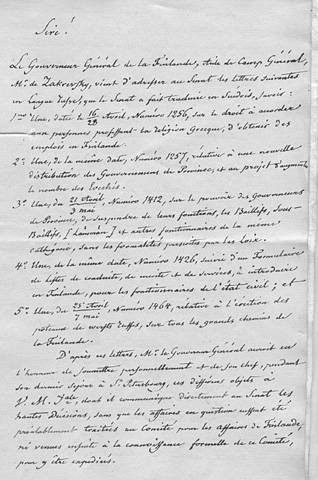 Sire!
Le Gouverneur Général de la Finlande, Aide de Camp Général,
Mr. de Zakrevsky, vient d'adresser au Sénat les lettres suivantes
en langue Russe, que le Sénat a fait traduire en Suédois, savoir:
1mo Une, datée le 16/28 Avril, Numéro 1256, sur le droit à accorder
aux personnes professant la Religion Grecque, d'obtenir des
emplois en Finlande.
2o Une, de la même date, Numéro 1257, rélative à une nouvelle
distribution des Gouvernemens de Province, et au projet d'augmenter
le nombre des
3o Une, du 21 Avril/3 mai, Numéro 1412, sur le pouvoir des Gouverneurs
de Province, de suspendre de leurs fonctions, les Baillifs, Sous-
Baillifs, [Länsman] et autres fonctionnaires de la même
cathégorie, sans les formalités prescrites par les Loix.
4o Une, de la même date, Numéro 1426, suivie d'un Formulaire
de listes de conduite, de mérite et de services, à introduire
en Finlande, pour les fonctionnaires de l'état civil; et
5o Une, du 25 Avril/7 mai, Numéro 1464, rélative à l'érection des
poteaux de werstes Russes, sur tous les grands chemins de
la Finlande.
D'après ces lettres, Mr. le Gouverneur Général auroit eu
l'honneur de soumettre personnellement et de son chef, pendant
son dernier séjour à St. Pétersbourg, ces différens objets à
V. M. Iale, dont il communique directement au Sénat les
hautes Décisions, sans que les affaires en question eussent été
préalablement traitées au Comité pour les affaires de Finlande,
ni venues ensuite à la connoissance formelle de ce Comité,
pour y être expédiées.